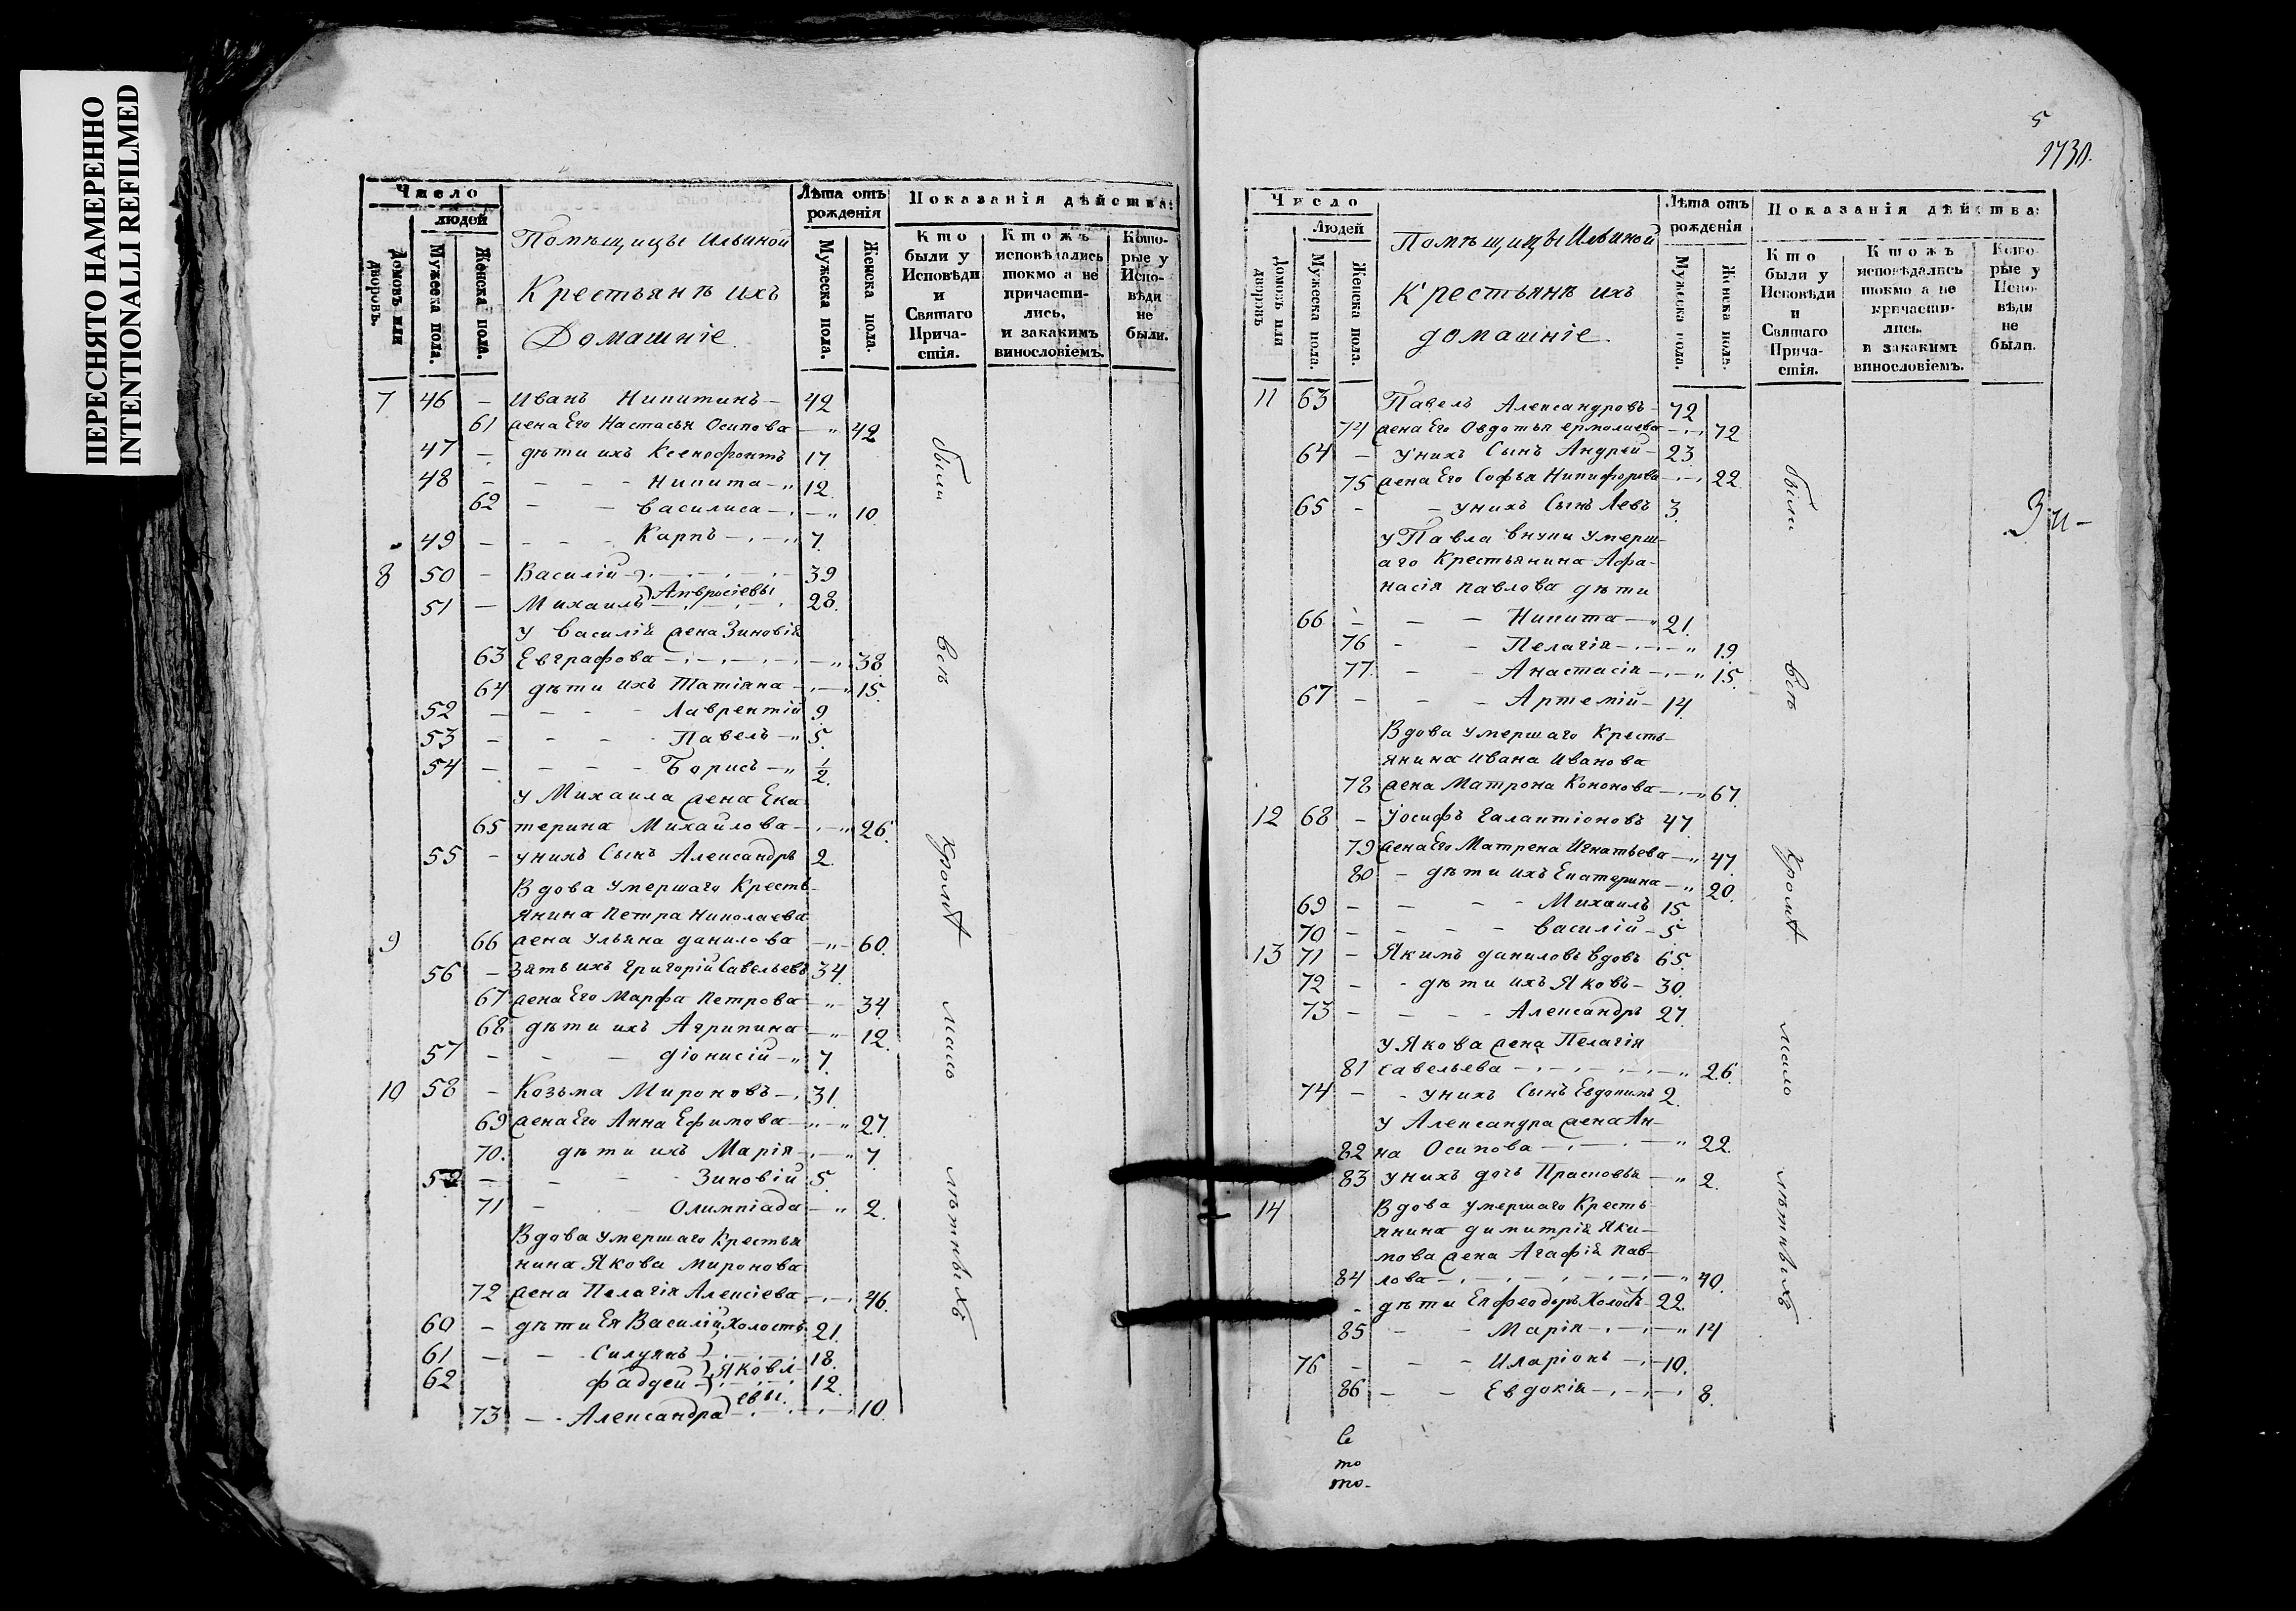 ПЕРЕСНЯТО НАМЕРЕННО
INTENTIONALLI REFILMED
Число
людей
Домовъ или дворовъ.
Мужеска пола.
Женска пола.
Помѣщицы Ильиной
Крестьянѣ ихъ
Домашніе.
Лѣта отъ рожденія
Мужеска пола.
Женска пола.
Показанія дѣйства:
Кто были у Исповѣди и Святаго Прича-стія.
Ктожъ исповѣдались токмо а не причасти-лись, и закакимъ винословіемъ.
Кото-рые у Испо-вѣди не были.
7 46 - Иванъ Никитинъ - 42
61 жена Его Настасья Осипова - „ 42
47 - дѣти ихъ Ксенофонтъ 17.
48 - - - - Никита - „ 12.
62 - - Василиса - „ 10.
49 - - - - Карпъ 7.
8 50 - Василій 39
Амвросіевы
51 - Михаилъ 28.
у Василія жена Зиновія
63 Евграфова - „ 38.
64 дѣти ихъ Татіяна - „ 15.
52 - - - - Лаврентій 9.
53 - - - - Павелъ - „ 5.
54 - - - - Борисъ - „ ½.
у Михаила жена Ека
65 терина Михайлова - „ 26.
55 - унихъ Сынъ Александръ 2.
Вдова умершаго Кресть-
янина Петра Николаева
9 66 жена Ульяна данилова - „ - 60.
56 - Зять ихъ григорій Савельевъ 34.
67 жена Его Марфа Петрова - „ - 34
68 дѣти ихъ Агрипина - „ - 12.
57 - - - діонисій - „ 7.
10 58 - Козьма Мироновъ - 31.
69 жена Его Анна Ефимова - „ - „ 27.
70. дѣти ихъ Марія - „ 7.
59 - - - - Зиновій 5.
71 - - Олимпіада - „ 2.
Вдова умершаго Крестья
нина Якова Миронова
72 жена Пелагія Алексіева 46.
60 - дѣти Ея Василій Холостъ 21.
61 - - Силуянъ 18.
Яковл-
62 фаддей 12.
евы.
73 - - Александра 10.
были
всѣ
кромѣ
мало
лѣтныхъ
5
1730.
Число
Людей
Домовъ или дворовъ
Мужеска пола.
Женска пола.
Помѣщицы Ильиной
Крестьянѣ ихъ
домашніе.
Лѣта отъ рожденія
Мужеска пола.
Женска пола.
Показанія дѣйства:
Кто были у Исповѣди и Святаго Прича-стія.
Ктожъ исповѣдались токмо а не причасти-лись. и закакимъ винословіемъ.
Кото-рые у Испо-вѣди не были.
11 63 Павелъ Александровъ - 72
74 жена Его Овдотья ермолаева 72
64 - унихъ Сынъ Андрей - 23
75 жена Его Софья Никифорова 22
65 - - унихъ Сынъ Левъ 3.
у Павла внуки умерш-
аго Крестьянина Афа-
насія павлова дѣти
66 - - - Никита - „ 21.
76 - - Пелагія - „ 19
77. - - Анастасія - „ 15.
67 - - - Артемій - 14.
Вдова умершаго Кресть-
янина ивана иванова
78 жена Матрона Кононова - „ 67.
12 68 - Іосифъ Галактіоновъ 47.
79 жена Его Матрена Игнатьева - „ 47.
80 - дѣти ихъ Екатерина - „ 20.
69 - - - - Михаилъ 15.
70 - - - - Василій - 5
13 71 - Якимъ даниловъ вдовъ 65.
72 - - дѣти ихъ Яковъ - 30.
73 - - - - Александръ 27.
у Якова жена Пелагія
81 савельева - „ 26.
74 - - унихъ Сынъ Евдокимъ 2.
у Александра жена Ан-
82 на Осипова - „ 22.
83 унихъ дочь Прасковья - „ 2.
14 Вдова умершаго Кресть-
янина димитрія Яки-
мова жена Агафія пав-
84 лова - „ 40.
- дѣти Ея феодоръ Холостъ 22.
85 - - Марія - „ 14
76 - - - Иларіонъ - 10.
86 - - Евдокія 8.
были
всѣ
кромѣ
мало
лѣтныхъ